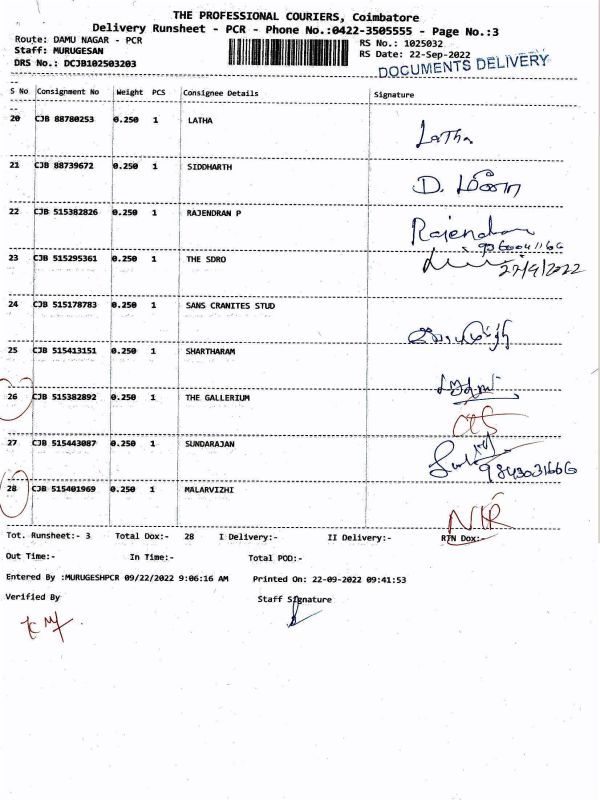 THE PROFESSIONAL COURIERS, Coimbatore
Delivery Runsheet - PCR - Phone No.:0422-3505555 - Page No.:3
Route: DAMU NAGAR - PCR RS No.: 1025032
Staff: MURUGESAN RS Date: 22-Sep-2022
DRS No.: DCJB102503203 DOCUMENTS DELIVERY
S No Consignment No Weight PCS Consignee Details Signature
20 CJB 88780253 0.250 1 LATHA
Latha
21 CJB 88739672 0.250 1 SIDDHARTH
D.
22 CJB 515382826 0.250 1 RAJENDRAN P
Rajendran
23 CJB 515295361 0.250 1 THE SDRO
22/9/2022
24 CJB 515178783 0.250 1 SANS CRANITES STUD
25 CJB 515413151 0.250 1 SHARTHARAM
26 CJB 515382892 0.250 1 THE GALLERIUM
27 CJB 515443087 0.250 1 SUNDARAJAN
9843031666
28 CJB 515401969 0.250 1 MALARVIZHI
NIR
Tot. Runsheet:- 3 Total Dox:- 28 I Delivery:- II Delivery:- RTN Dox:-
Out Time:- In Time:- Total POD:-
Entered By :MURUGESHPCR 09/22/2022 9:06:16 AM Printed On: 22-09-2022 09:41:53
Verified By Staff Signature